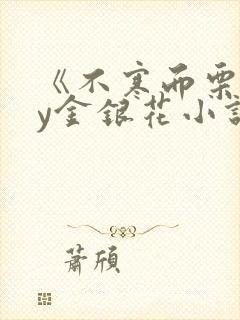 《不寒而栗
y金银花小说
萧颀